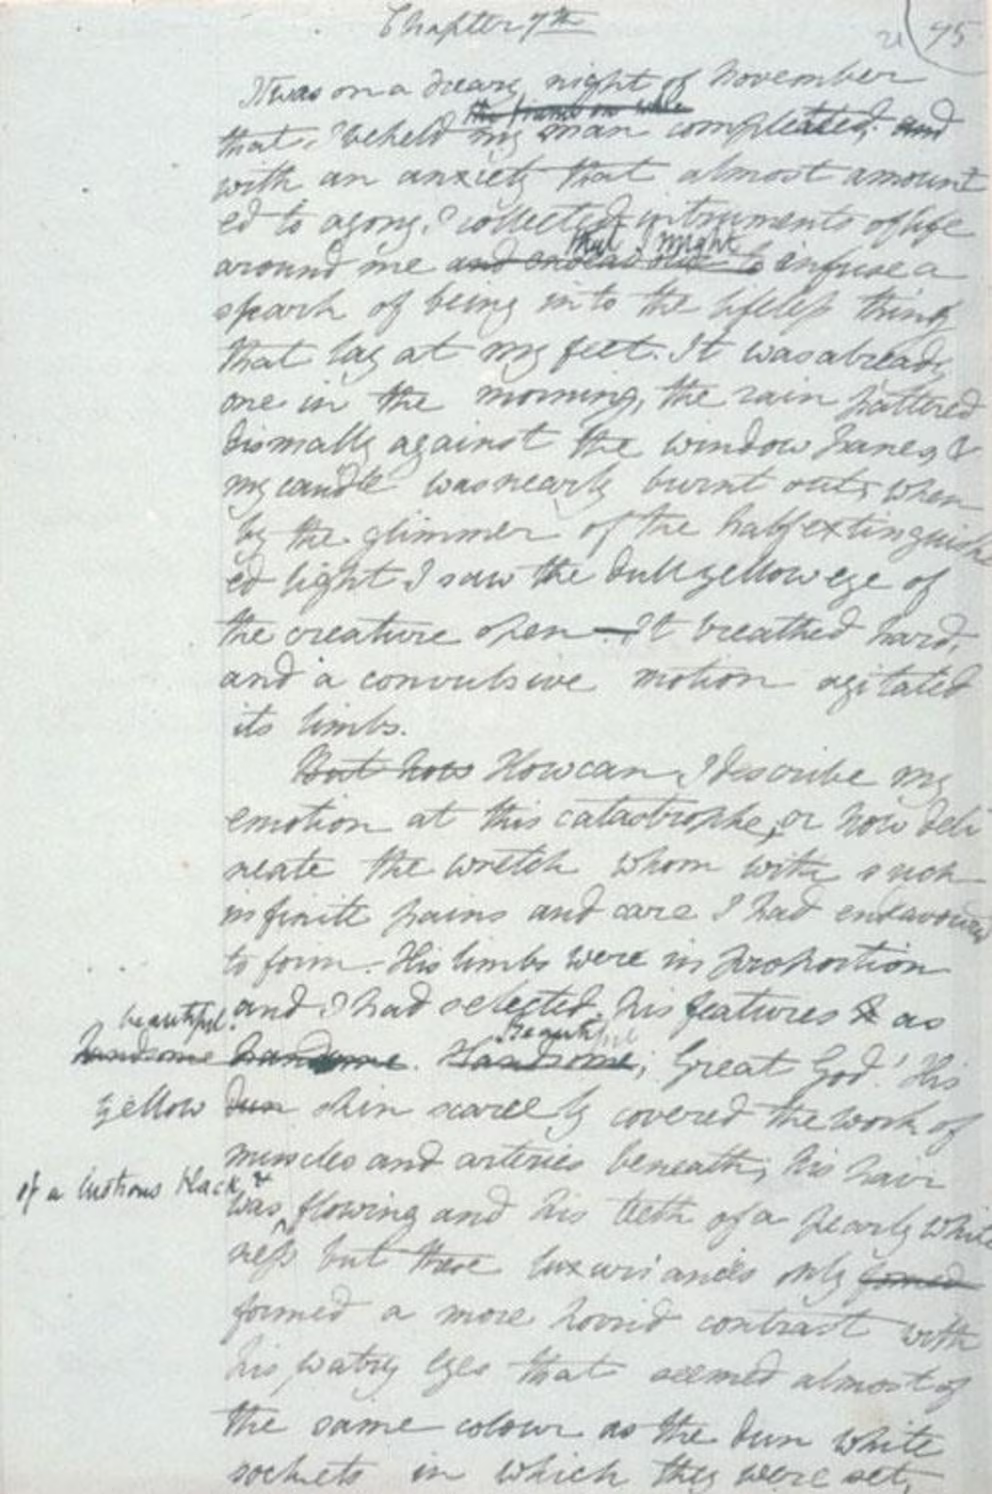 Chapter 7th
21 95
It was on a dreary night of November
that I beheld my man compleated; and
with an anxiety that almost amount
ed to agony, I collected instruments of life
that I might
around me and endeavour to infuse a
spark of being into the lifeless thing
that lay at my feet. It was already
one in the morning, the rain pattered
dismally against the window panes, &
my candle was nearly burnt out, when
by the glimmer of the half extinguish
ed light I saw the dull yellow eye of
the creature open—It breathed hard,
and a convulsive motion agitated
its limbs.
But how How can I describe my
emotion at this catastrophe; or how deli
neate the wretch whom with such
infinite pains and care I had endeavoured
to form. His limbs were in proportion
and I had selected his features as
beautiful
handsome handsome. Beautiful Handsome; Great God! His
yellow dun skin scarcely covered the work of
muscles and arteries beneath; his hair
of a lustrous black, &
was flowing and his teeth of a pearly white
ness but these luxuriancies only formed
formed a more horrid contrast with
his watry eyes that seemed almost of
the same colour as the dun white
sockets in which they were set,